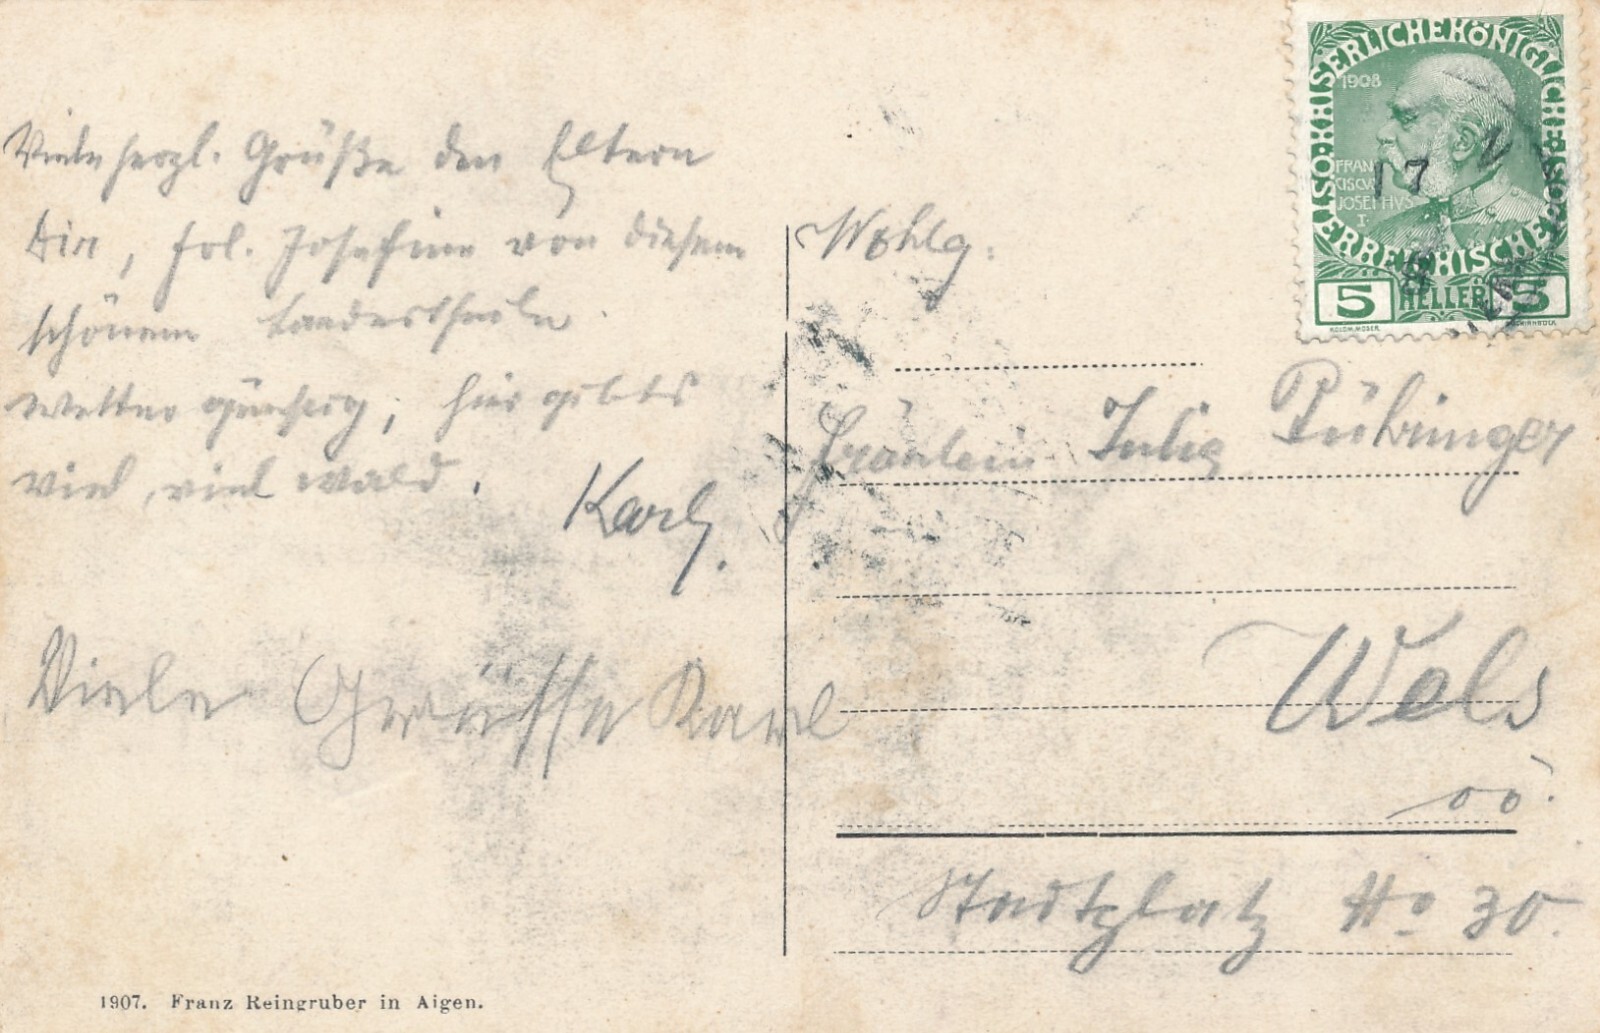 Viele herzl. Grüße den Eltern
Dir, Frl. Josefine von diesem
schönem Landestheile.
Wetter günstig, hier gibts
viel, viel Wald.
Karl.
Viele Grüsse Karl
Wohlg.
Fräulein Julie Pühringer
Wels
OÖ.
Stadtplatz No 30.
1907. Franz Reingruber in Aigen.
KAISERLICHE KÖNIGLICHE ÖSTERREICHISCHE POST
1908
FRAN
CISCVS
JOSEPHVS
I
5 HELLER 5
KOLOM. MOSER
17